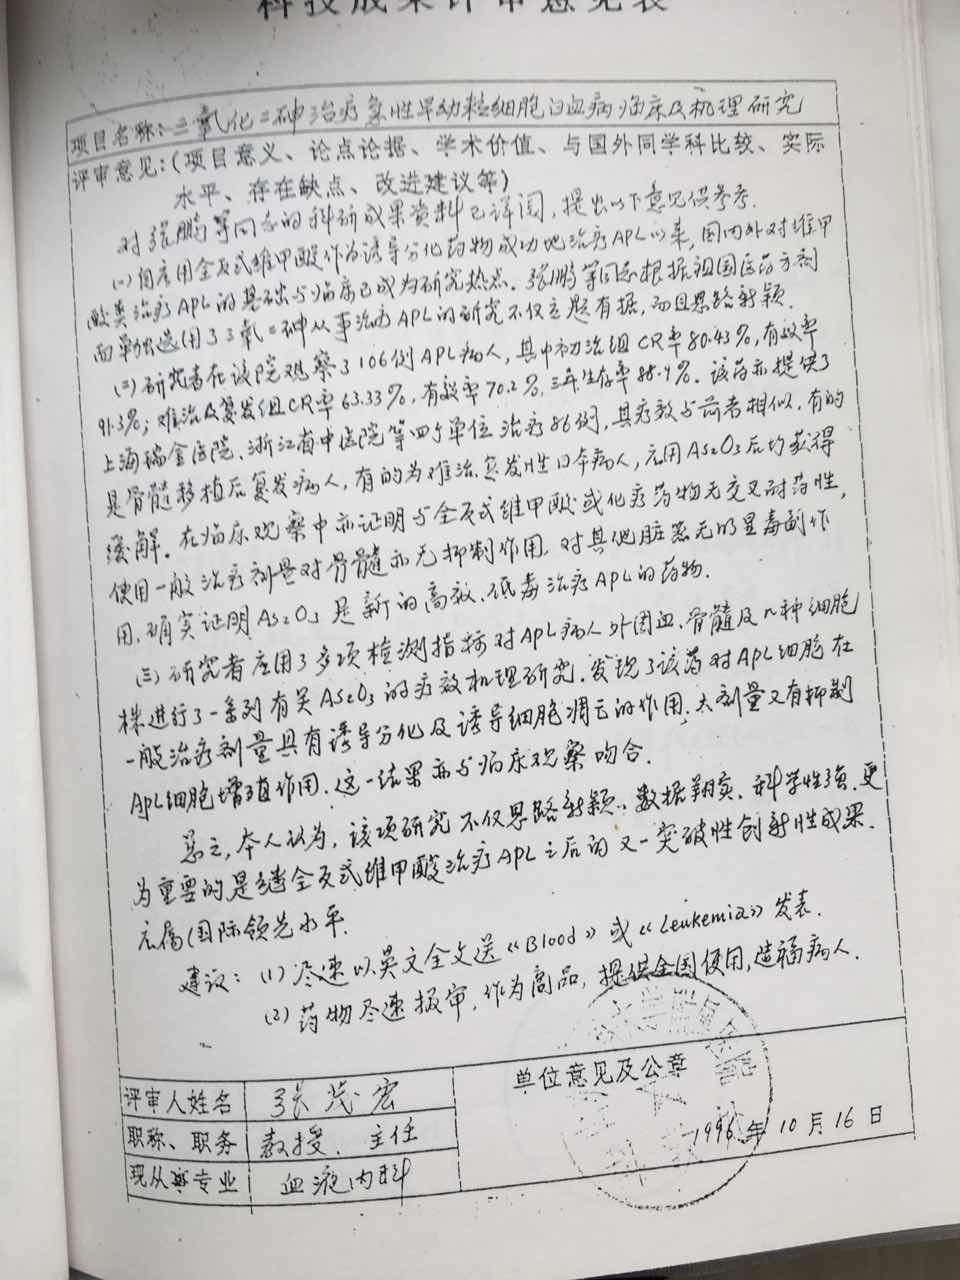 科技成果评审意见表
项目名称:三氧化二砷治疗急性早幼粒细胞白血病临床及机理研究
评审意见:(项目意义、论点论据、学术价值、与国外同学科比较、实际
水平、存在缺点、改进建议等)
对张鹏等同志的科研成果资料已详阅,提出以下意见供参考.
(一)自应用全反式维甲酸作为诱导分化药物成功地治疗APL以来,国内外对维甲
酸类治疗APL的基础与临床已成为研究热点.张鹏等同志根据祖国医药方剂
而单独选用了三氧二砷从事治疗APL的研究不仅立题有据,而且思路新颖.
(二)研究者在该院观察了106例APL病人,其中初治组CR率80.43%,有效率
91.3%;难治及复发组CR率63.33%,有效率70.2%,三年生存率88.9%.该药亦提供了
上海瑞金医院、浙江省中医院等四个单位治疗86例,其疗效与前者相似.有的
是骨髓移植后复发病人,有的为难治复发性日本病人,应用As₂O₃后均获得
缓解.在临床观察中亦证明与全反式维甲酸或化疗药物无交叉耐药性,
使用一般治疗剂量对骨髓亦无抑制作用,对其他脏器无明显毒副作
用,确实证明As₂O₃是新的高效、低毒治疗APL的药物.
(三)研究者应用了多项检测指标对APL病人外周血、骨髓及几种细胞
株进行了一系列有关As₂O₃的疗效机理研究.发现了该药对APL细胞在
一般治疗剂量具有诱导分化及诱导细胞凋亡的作用.大剂量又有抑制
APL细胞增殖作用.这一结果亦与临床观察吻合.
总之,本人认为,该项研究不仅思路新颖、数据翔实、科学性强.更
为重要的是继全反式维甲酸治疗APL之后的又一突破性创新性成果.
应属国际领先水平.
建议:(1)尽速以英文全文送《Blood》或《Leukemia》发表.
(2)药物尽速报审,作为商品,提供全国使用,造福病人.
评审人姓名 张茂宏
单位意见及公章
职称、职务 教授、主任
1996年10月16日
现从事专业 血液内科